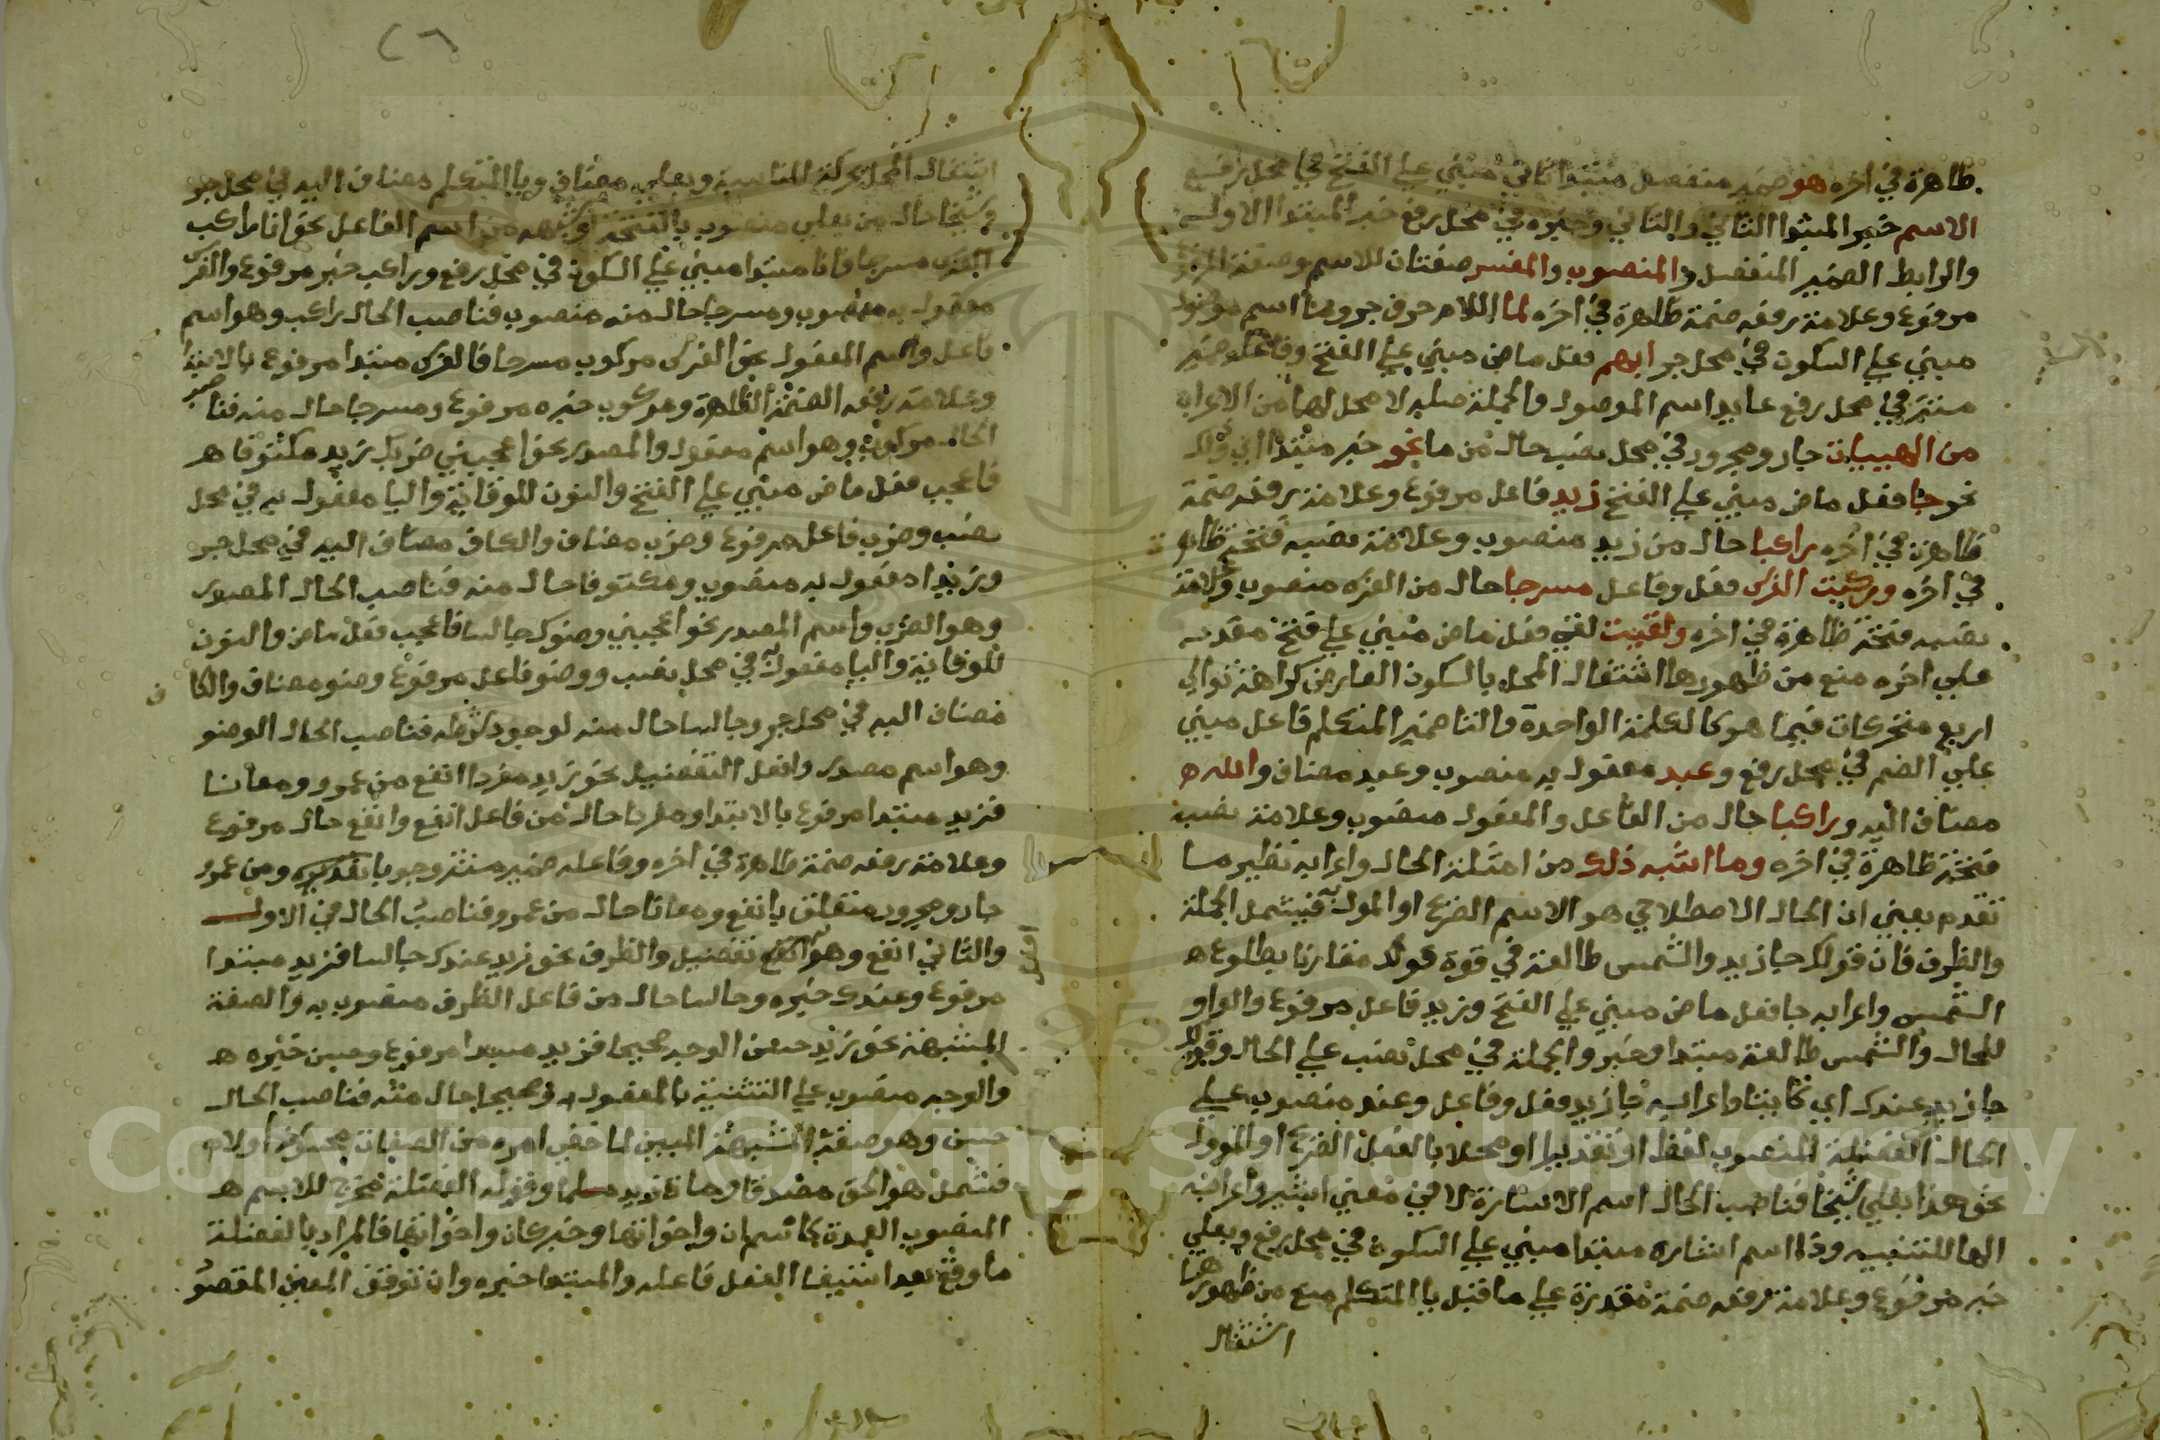 ظاهرة في اخره هو ضمير منفصل مبتدا ثاني مبني علي الفتح في محل رفع
الاسم خبر المبتدا الثاني والثاني وخبره في محل رفع خبر المبتدا الاول
والرابط الضمير المنفصل والمنصوب والمفسر صفتان للاسم وصفة المرفوع
مرفوع وعلامة رفعه ضمة ظاهرة في اخره لما اللام حرف جر وما اسم موصول
مبني علي السكون في محل جر انبهم فعل ماض مبني علي الفتح وفاعله ضمير
مستتر في محل رفع عايد اسم الموصول والجملة صلة لا محل لها من الاعراب
من الهييات جار ومجرور في محل نصب حال من ما نحو خبر مبتدا اي وذلك
نحو جا فعل ماض مبني علي الفتح زيد فاعل مرفوع وعلامة رفعه ضمة
ظاهرة في اخره راكبا حال من زيد منصوب وعلامة نصبه فتحة ظاهرة
في اخره وركبت الفرس فعل وفاعل مسرجا حال من الفرس منصوب وعلامة
نصبه فتحة ظاهرة في اخره ولقيت لقي فعل ماض مبني علي فتح مقدر
علي اخره منع من ظهورها اشتغال المحل بالسكون العارض كراهة توالي
اربع متحركات فيما هو كالكلمة الواحدة والتا ضمير المتكلم فاعل مبني
علي الضم في محل رفع وعبد مفعول به منصوب وعبد مضاف والله
مضاف اليه وراكبا حال من الفاعل والمفعول منصوب وعلامة نصبه
فتحة ظاهرة في اخره وما اشبه ذلك من امثلة الحال واعرابه نظير ما
تقدم يعني ان الحال الاصطلاحي هو الاسم الصريح او الموول به فيشمل الجملة
والظرف فان قولك جا زيد والشمس طالعة في قوة قولك مقارنا بطلوع
الشمس واعرابه جا فعل ماض مبني علي الفتح وزيد فاعل مرفوع والواو
للحال والشمس طالعة مبتدا وخبر والجملة في محل نصب علي الحال وقولك
جا زيد عندك اي كاينا واعرابه جا زيد فعل وفاعل وعند منصوب علي
الحال الفضلة المنصوب لفظا او تقديرا او محلا بالفعل الصريح او الموول
نحو هذا بعلي شيخا فناصب الحال اسم الاشارة لا في معني اشير واعرابه
الها للتنبيه وذا اسم اشاره مبتدا مبني علي السكون في محل رفع وبعلي
خبر مرفوع وعلامة رفعه ضمة مقدرة علي ما قبل يا المتكلم منع من ظهورها
اشتغال
اشتغال المحل بحركة المناسبة وبعلي مضاف ويا المتكلم مضاف اليه في محل جر
وشيخا حال من بعلي منصوب بالفتحة اسم الفاعل نحو انا راكب
الفرس مسرجا فانا مبتدا مبني علي السكون في محل رفع وراكب خبر مرفوع والفرس
مفعول به منصوب ومسرجا حال منه منصوب فناصب الحال راكب وهو اسم
فاعل واسم المفعول نحو الفرس مركوب مسرجا فالفرس مبتدا مرفوع بالابتدا
وعلامة رفعه الضمة الظاهرة ومركوب خبره مرفوع ومسرجا حال منه فناصب
الحال مركوب وهو اسم مفعول والمصدر نحو اعجبني ضربك زيد مكتوفا
فاعجب فعل ماض مبني علي الفتح والنون للوقاية واليا مفعول به في محل
نصب وضرب فاعل مرفوع وضرب مضاف والكاف مضاف اليه في محل جر
وزيدا مفعول به منصوب ومكتوفا حال منه فناصب الحال المصدر
وهو الضرب واسم المصدر نحو اعجبني وضوك جالسا فاعجب فعل ماض والنون
للوقاية واليا مفعول به في محل نصب ووضو فاعل مرفوع وضو مضاف والكاف
مضاف اليه في محل جر وجالسا حال منه لوجود شرطه فناصب الحال الوضو
وهو اسم مصدر وافعل التفضيل نحو زيد مفردا انفع من عمرو ومعانا
فزيد مبتدا مرفوع بالابتدا ومفردا حال من فاعل انفع وانفع حال مرفوع
وعلامة رفعه ضمة ظاهرة في اخره وفاعله ضمير مستتر وجوبا تقديره ومن عمرو
جار ومجرور متعلق بانفع ومعانا حال من عمرو فناصب الحال في الاول
والثاني انفع وهو تفضيل والظرف نحو زيد عندك جالسا فزيد مبتدا
مرفوع وعندك خبره وجالسا حال من فاعل الظرف منصوب به والصفة
المشبهة نحو زيد حسن الوجه صحيحا فزيد مبتدا مرفوع وحسن خبره
والوجه منصوب علي التشبيه بالمفعول به وصحيحا حال منه فناصب الحال
حسن وهو صفة المشبهة المبين لما خفي امره من الصفات محسوسة او لا
فشمل هو الحق مصدقا وما زيد مسلما وقوله الفضلة مخرج للاسم
المنصوب العمدة كاسم ان واخواتها وخبر كان واخواتها فالمراد بالفضلة
ما وقع بعد استيفا الفعل فاعله والمبتدا خبره وان توقف المعني المقصود